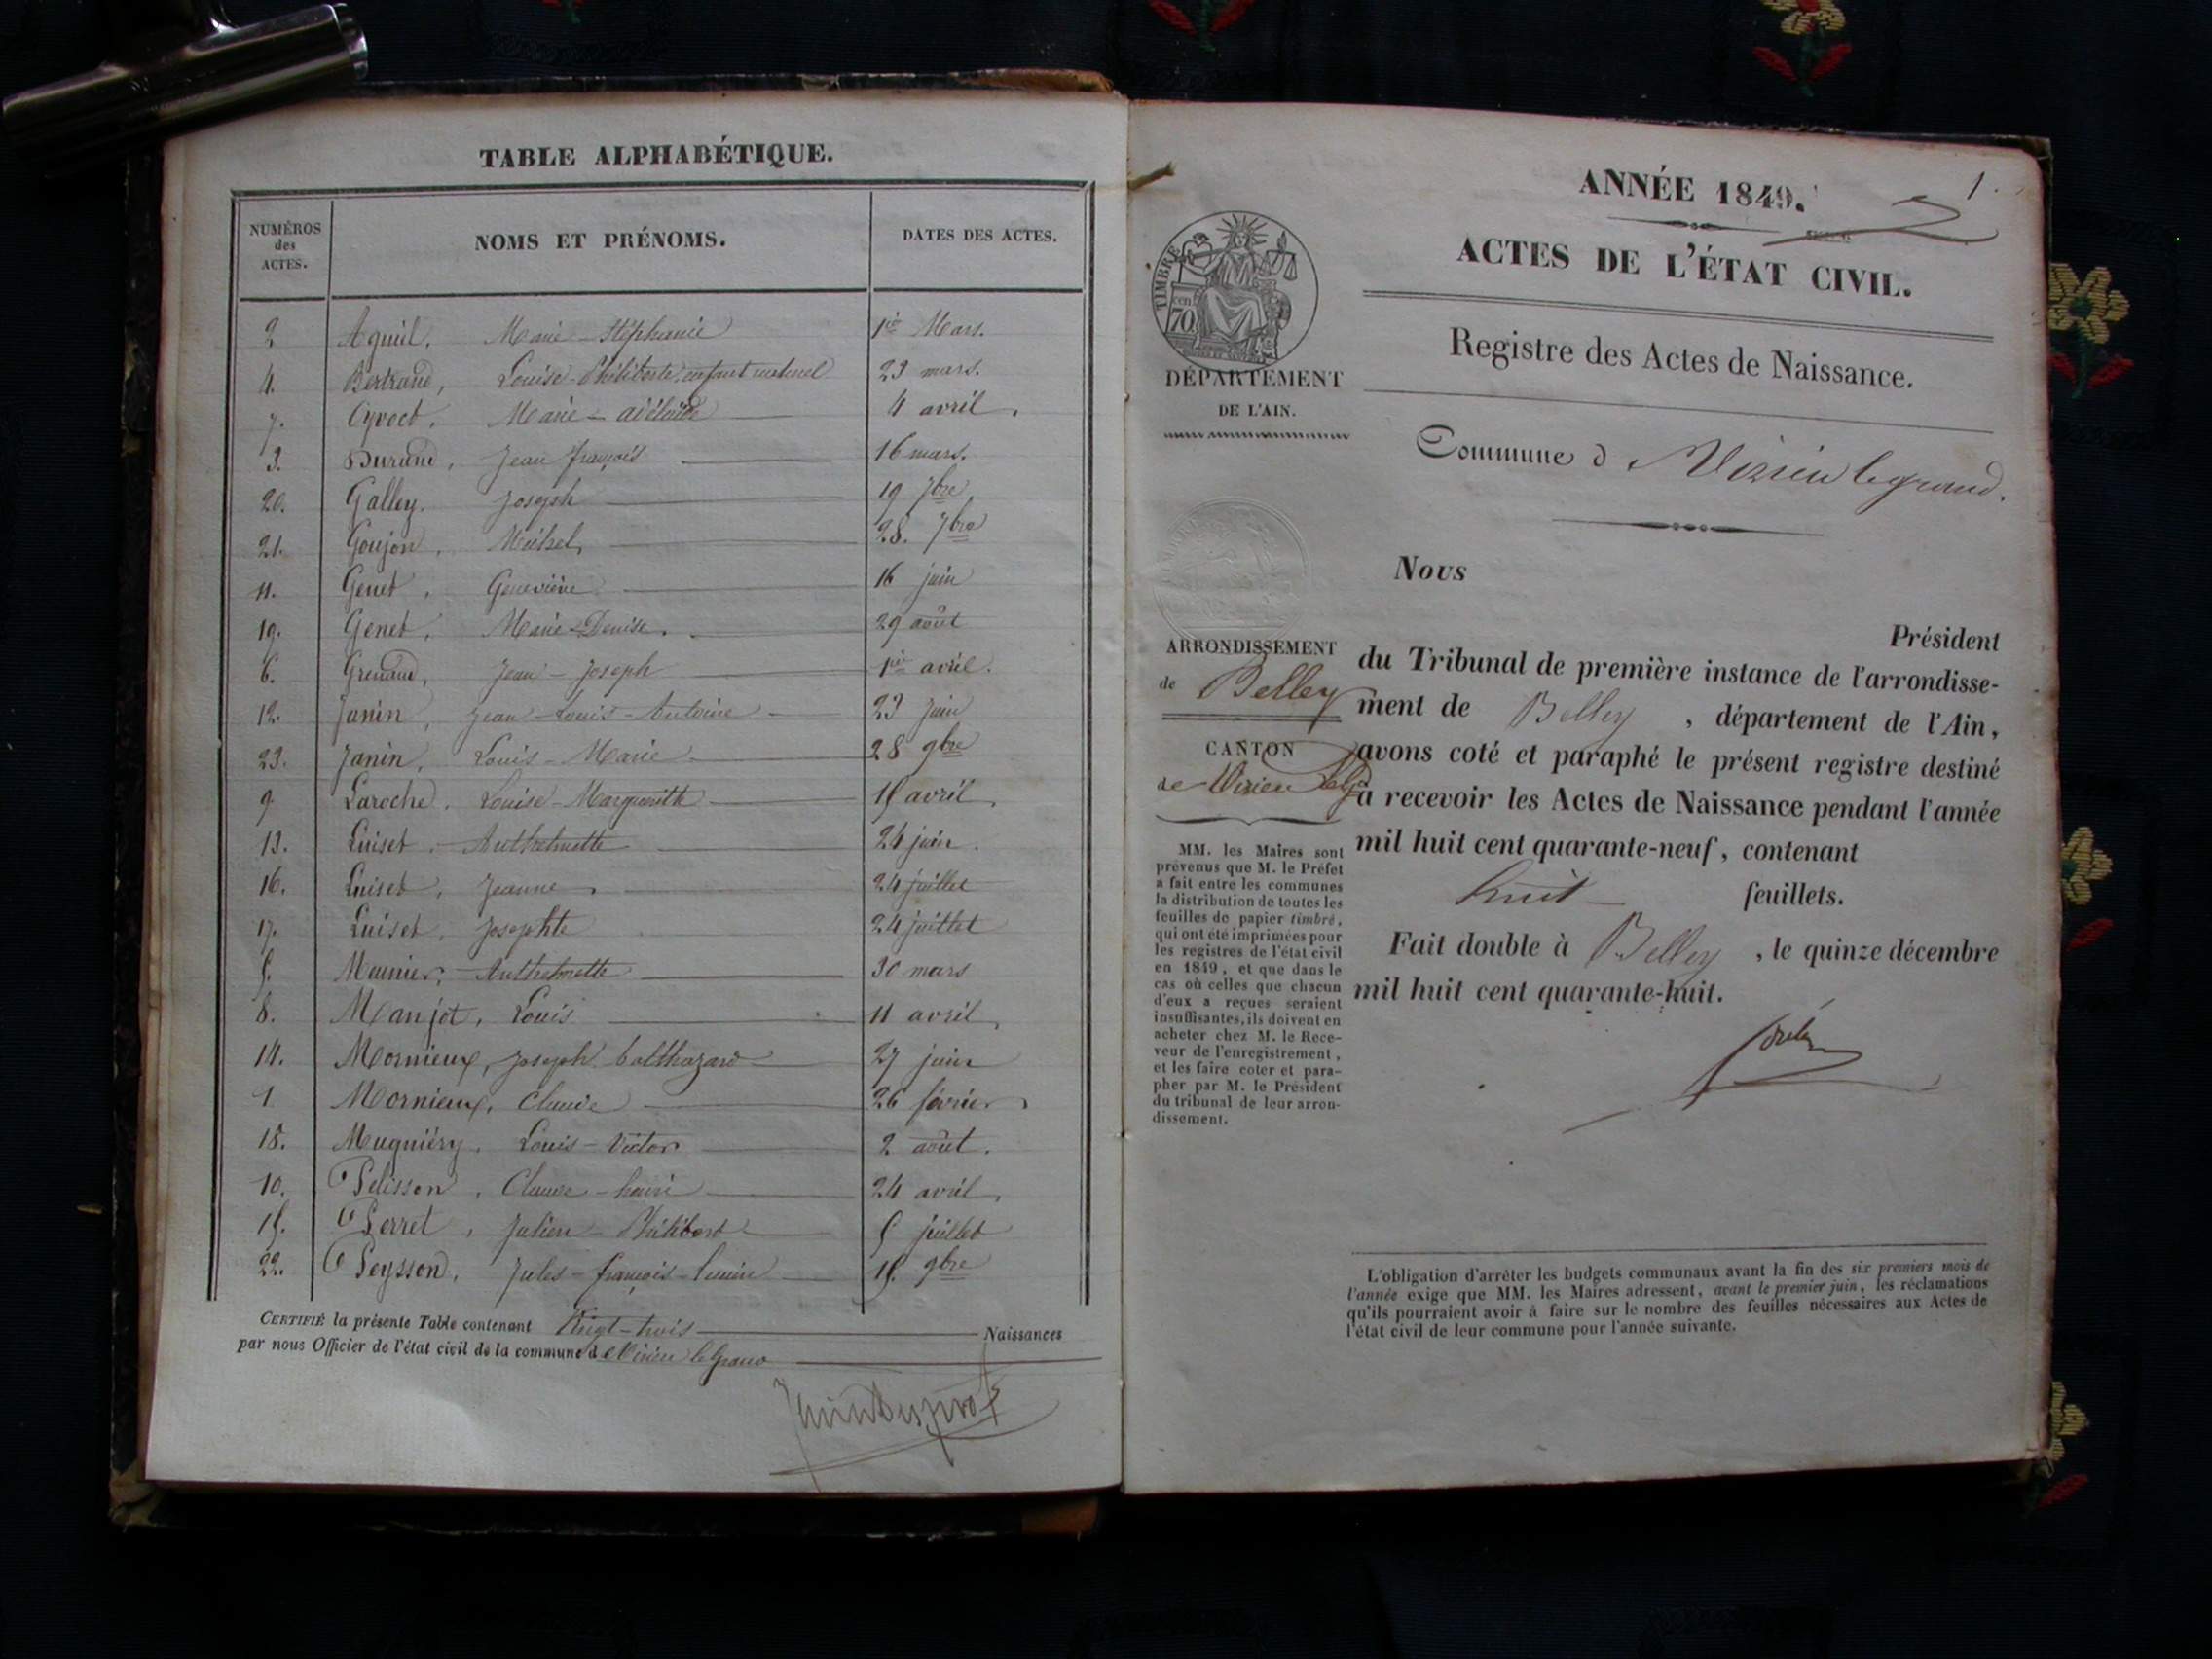 TABLE ALPHABÉTIQUE.
NUMÉROS des ACTES. NOMS ET PRÉNOMS. DATES DES ACTES.
2 Aguil, Marie-Stéphanie 1er Mars.
4. Bertrand, Louise-Philiberte, enfant naturel 23 mars.
7. Cyvoct, Marie-adélaïde 4 avril.
3. Durand, Jean françois 16 mars.
20. Galley, Joseph 19 7bre
21. Goujon, Michel, 28. 7bre
11. Genet, Geneviève 16 juin
19. Genet, Marie-Denise. 29 août
6. Grenaud, Jean-Joseph 1er avril.
12. Janin, Jean-Louis-Antoine 23 Juin
23. Janin, Louis-Marie 28 9bre
9 Laroche, Louise-Marguerite 15 avril,
13. Luiset, Anthelmette 24 juin.
16. Luiset, Jeanne 24 juillet
17. Luiset, Josephte 24 juillet
5. Meunier, Anthelmette 30 mars
8. Manjot, Louis 11 avril,
14. Mornieux, Joseph balthazard 27 juin
1 Mornieux, Claude 26 février
18. Mugniéry, Louis-Victor 2 août.
10. Pelisson, Claude-henri 24 avril,
15. Perret, Julien-Philibert 5 juillet
22. Peysson, Jules-françois 15. 9bre
CERTIFIÉ la présente Table contenant Vingt-trois Naissances
par nous Officier de l'état civil de la commune de Virieu le Grand
1.
ANNÉE 1849.
ACTES DE L'ÉTAT CIVIL.
Registre des Actes de Naissance.
TIMBRE
cen
70
DÉPARTEMENT
DE L'AIN.
Commune d Virieu le grand.
Nous
Président
du Tribunal de première instance de l'arrondisse-
ment de Belley, département de l'Ain,
avons coté et paraphé le présent registre destiné
à recevoir les Actes de Naissance pendant l'année
mil huit cent quarante-neuf, contenant
huit feuillets.
Fait double à Belley, le quinze décembre
mil huit cent quarante-huit.
ARRONDISSEMENT
de Belley
CANTON
de Virieu
MM. les Maires sont
prévenus que M. le Préfet
a fait entre les communes
la distribution de toutes les
feuilles de papier timbré,
qui ont été imprimées pour
les registres de l'état civil
en 1849, et que dans le
cas où celles que chacun
d'eux a reçues seraient
insuffisantes, ils doivent en
acheter chez M. le Rece-
veur de l'enregistrement,
et les faire coter et para-
pher par M. le Président
du tribunal de leur arron-
dissement.
L'obligation d'arrêter les budgets communaux avant la fin des six premiers mois de
l'année exige que MM. les Maires adressent, avant le premier juin, les réclamations
qu'ils pourraient avoir à faire sur le nombre des feuilles nécessaires aux Actes de
l'état civil de leur commune pour l'année suivante.